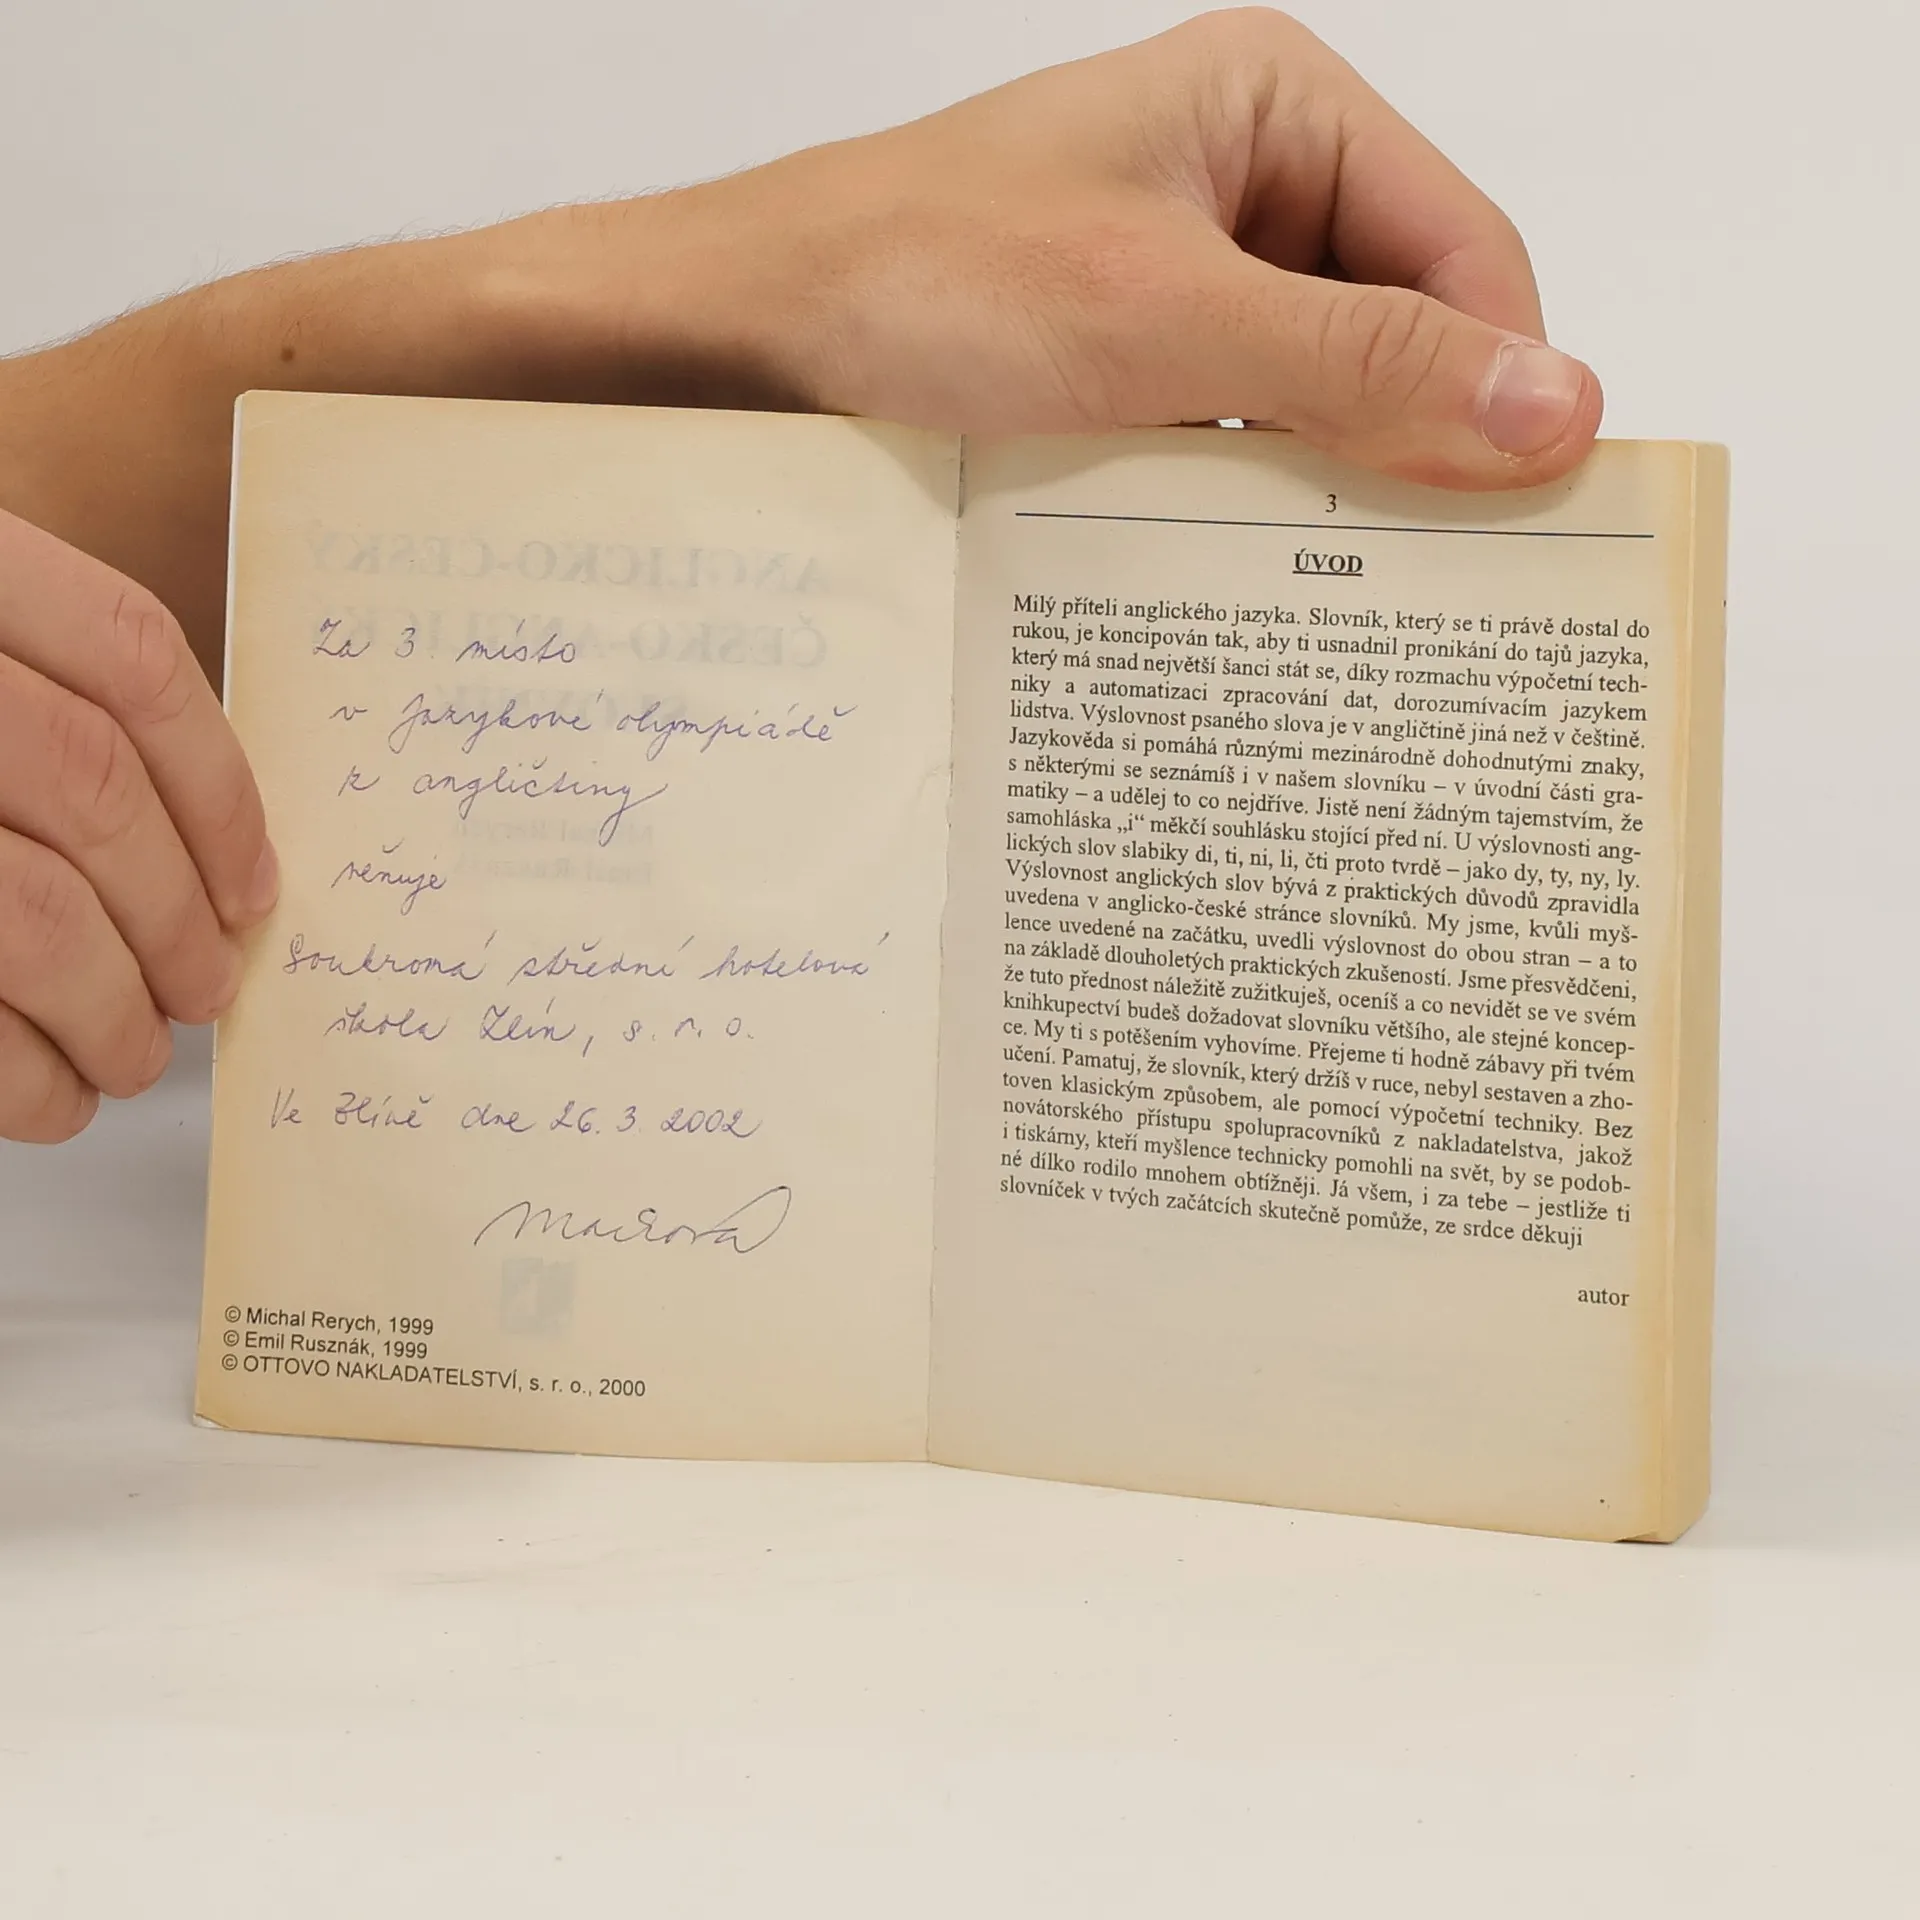 Za 3. místo
v Jazykové olympiádě
z angličtiny
věnuje
Soukromá střední hotelová
škola Zlín, s. r. o.
Ve Zlíně dne 26. 3. 2002
© Michal Rerych, 1999
© Emil Rusznák, 1999
© OTTOVO NAKLADATELSTVÍ, s. r. o., 2000
3
ÚVOD
Milý příteli anglického jazyka. Slovník, který se ti právě dostal do
rukou, je koncipován tak, aby ti usnadnil pronikání do tajů jazyka,
který má snad největší šanci stát se, díky rozmachu výpočetní tech-
niky a automatizaci zpracování dat, dorozumívacím jazykem
lidstva. Výslovnost psaného slova je v angličtině jiná než v češtině.
Jazykověda si pomáhá různými mezinárodně dohodnutými znaky,
s některými se seznámíš i v našem slovníku – v úvodní části gra-
matiky – a udělej to co nejdříve. Jistě není žádným tajemstvím, že
samohláska „i“ měkčí souhlásku stojící před ní. U výslovnosti ang-
lických slov slabiky di, ti, ni, li, čti proto tvrdě – jako dy, ty, ny, ly.
Výslovnost anglických slov bývá z praktických důvodů zpravidla
uvedena v anglicko-české stránce slovníků. My jsme, kvůli myš-
lence uvedené na začátku, uvedli výslovnost do obou stran – a to
na základě dlouholetých praktických zkušeností. Jsme přesvědčeni,
že tuto přednost náležitě zužitkuješ, oceníš a co nevidět se ve svém
knihkupectví budeš dožadovat slovníku většího, ale stejné koncep-
ce. My ti s potěšením vyhovíme. Přejeme ti hodně zábavy při tvém
učení. Pamatuj, že slovník, který držíš v ruce, nebyl sestaven a zho-
toven klasickým způsobem, ale pomocí výpočetní techniky. Bez
novátorského přístupu spolupracovníků z nakladatelstva, jakož
i tiskárny, kteří myšlence technicky pomohli na svět, by se podob-
né dílko rodilo mnohem obtížněji. Já všem, i za tebe – jestliže ti
slovníček v tvých začátcích skutečně pomůže, ze srdce děkuji
autor